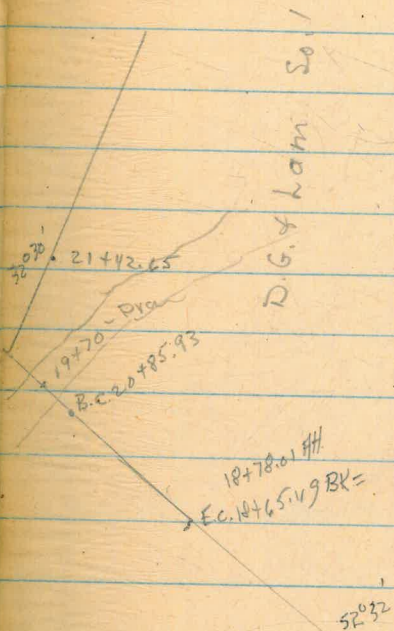 D.G. & Lam So.
32°30'
21+42.65
19+70 - Dra
B.C. 20+85.93
18+78.01 AH
E.C. 18+65.49 BK=
52°32'